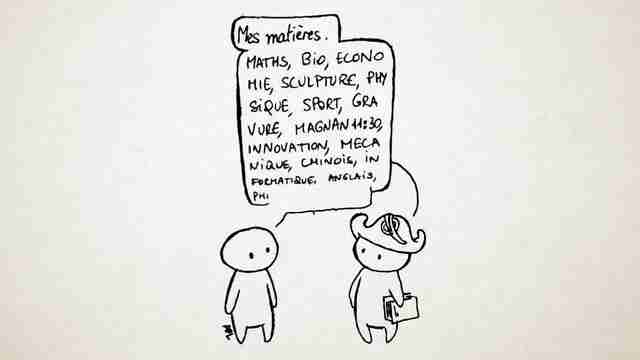 Mes matières.
MATHS, BIO, ECONO
MIE, SCULPTURE, PHY
SIQUE, SPORT, GRA
VURE, MAGNAN 11:30,
INNOVATION, MECA
NIQUE, CHINOIS, IN
FORMATIQUE, ANGLAIS,
PHI